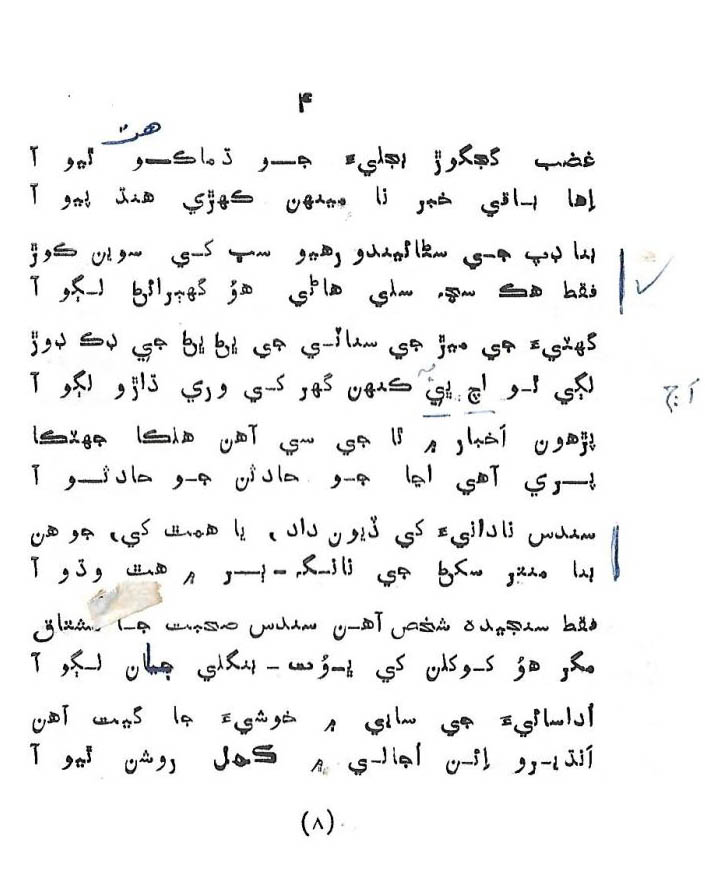 ۴
هت
غضب گجگوڙ بجليءَ جو ڌماڪو ٿيو آ
اِها باقي خبر نا مينهن ڪهڙي هنڌ پيو آ
بنا ڊپ جي سڻائيندو رهيو سڀ کي سوين ڪوڙ
فقط هڪ سچ سلي هاڻي هوُ گهبرائڻ لڳو آ
گهٽيءَ جي ميڙ جي سناٽي جي ڀڻ ڀڻ جي ڊڪ ڊوڙ
لڳي ٿو اڄ ٻيءَ ڪنهن گهر کي وري ڌاڙو لڳو آ
اَڄ
پڙهون اَخبار ۾ ٿا جي سي آهن هلڪا جهٽڪا
پري آهي اڃا جو حادثن جو حادثو آ
سندس نادانيءَ کي ڏيون داد، يا همت کي، جو هن
بنا منتر سکڻ جي نانگ ـ ٻر ۾ هٿ وڌو آ
فقط سنجيده شخص آهن سندس صحبت جا مشتاق
مگر هوُ کوکلن کي ڀوُت ـ بنگلي جيان لڳو آ
اُداسائيءَ جي سايي ۾ خوشيءَ جا گيت آهن
اَنڌيرو اِئن اُجالي ۾ ڪمل روشن ٿيو آ
(۸)